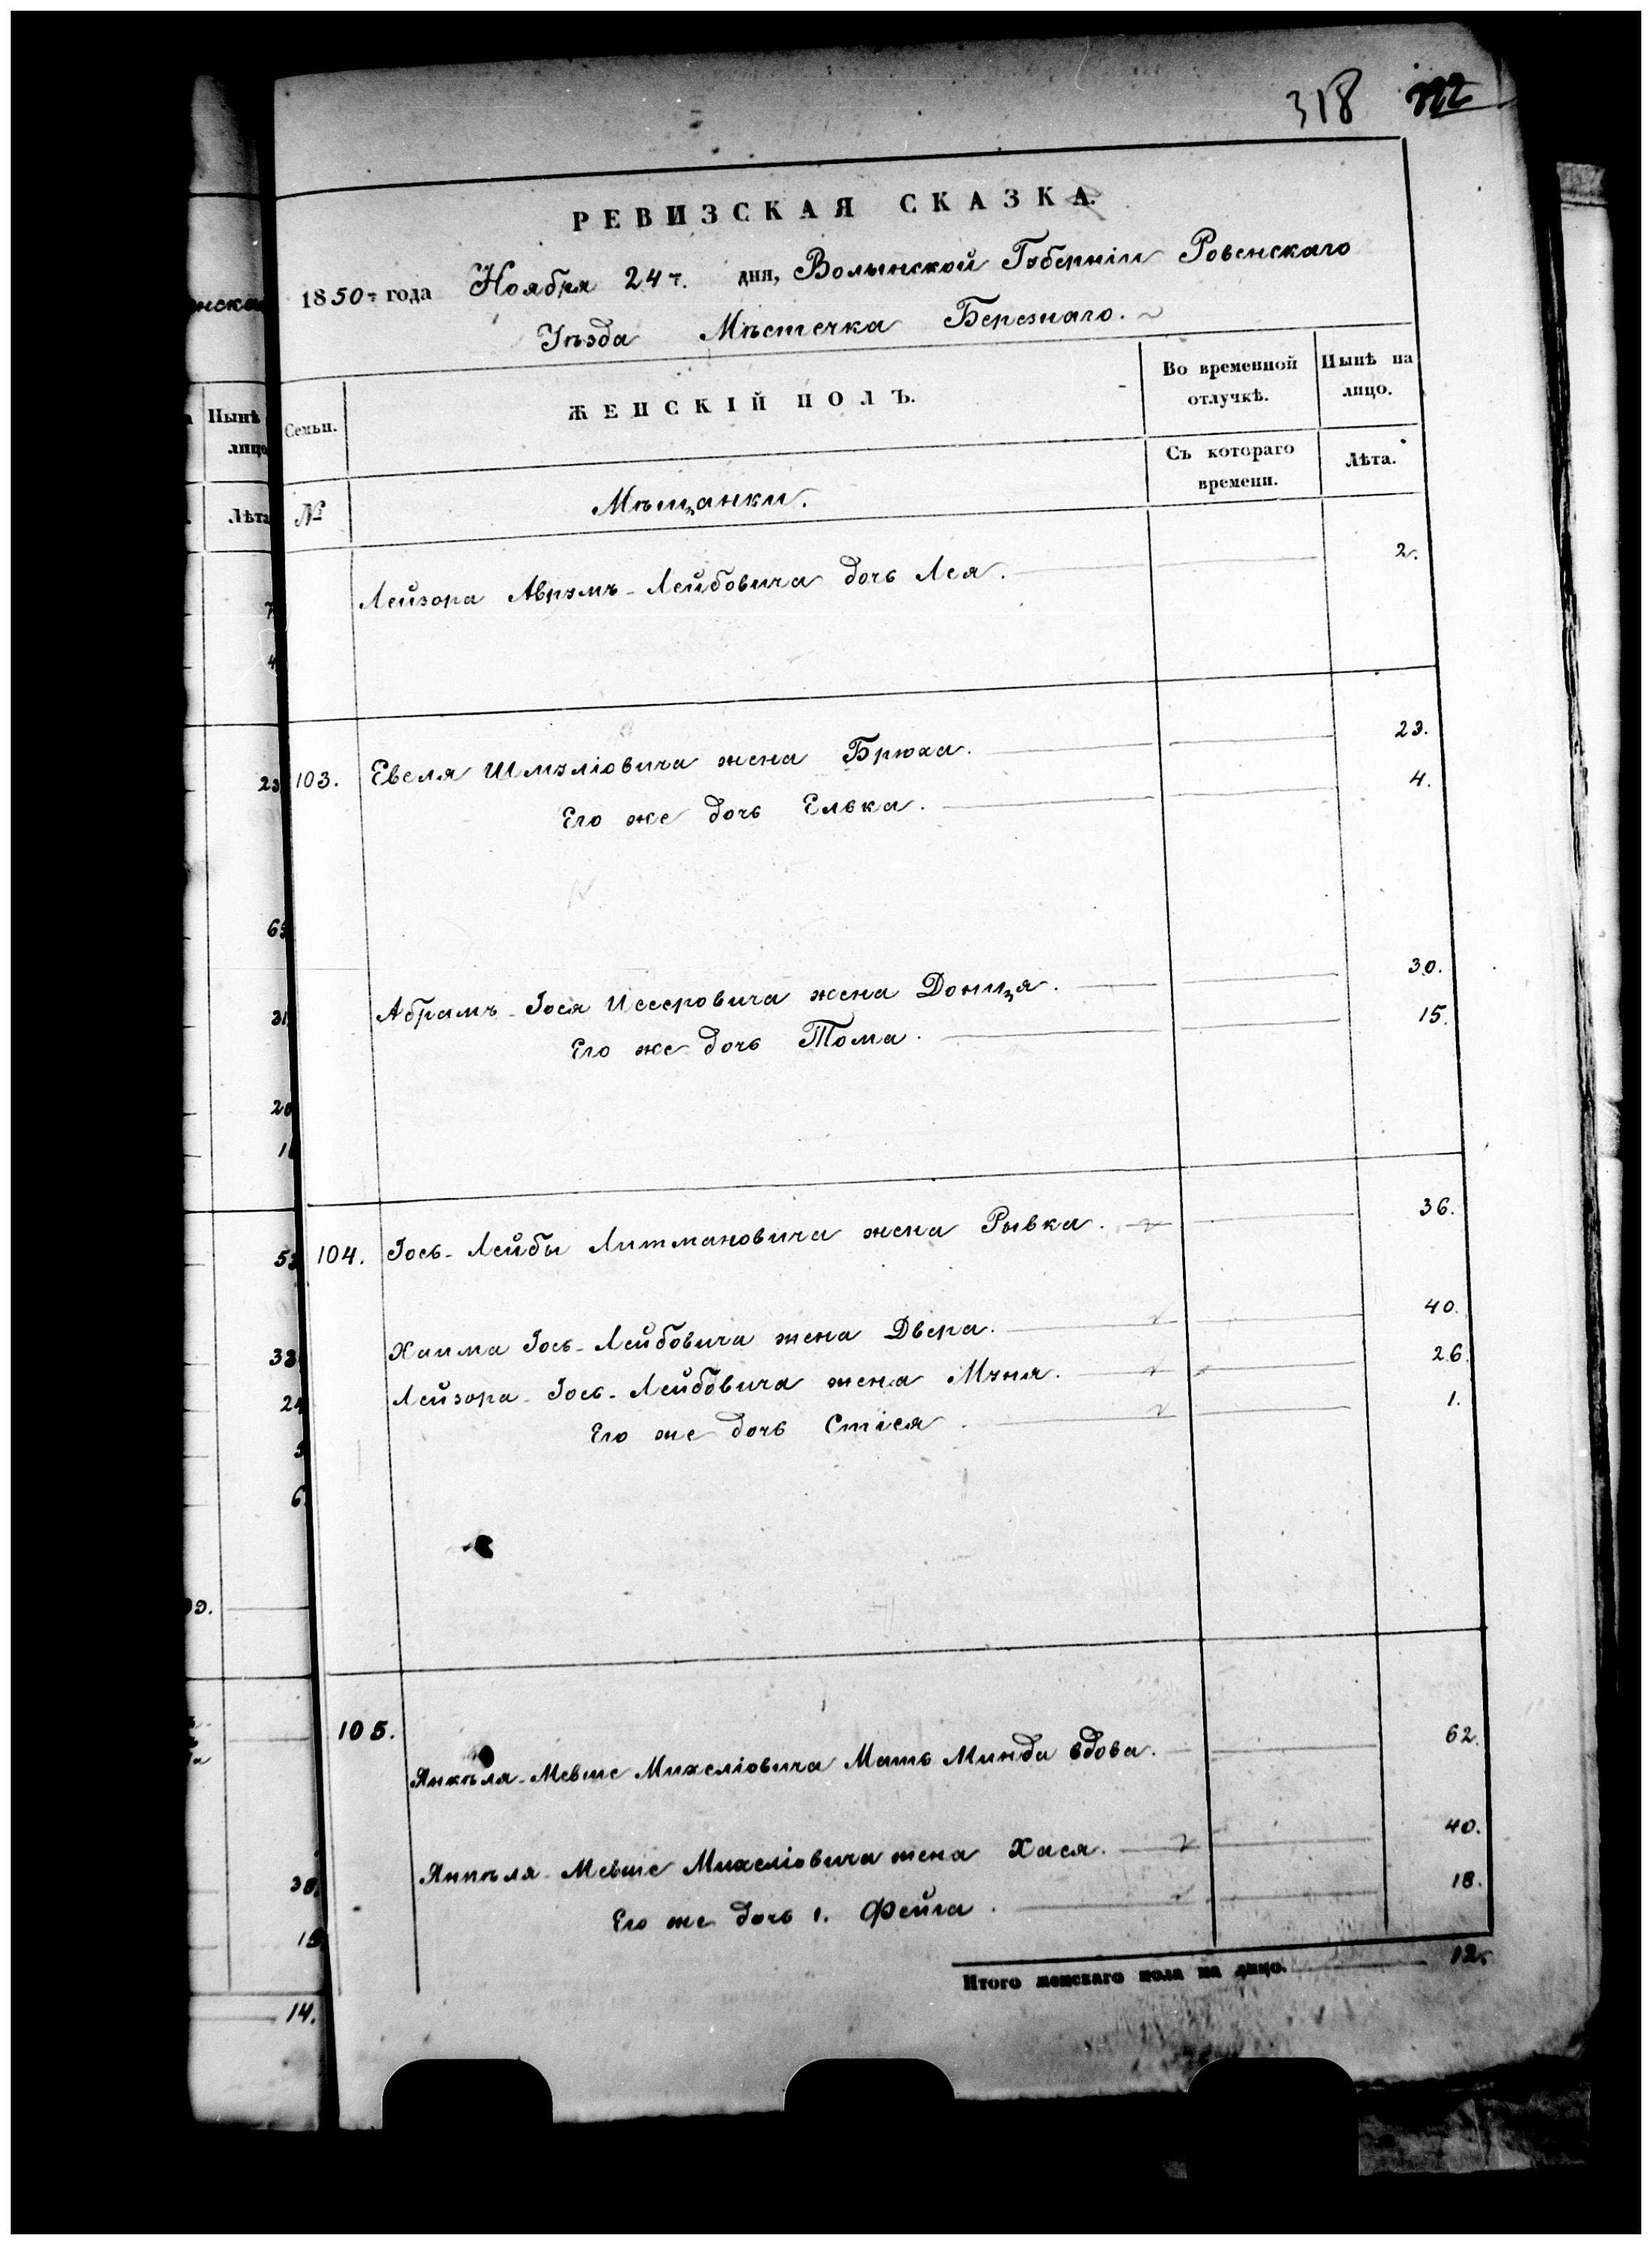 318 322
РЕВИЗСКАЯ СКАЗКА.
1850 года Ноября 24 дня, Волынской Губерніи Ровенскаго
Уѣзда Мѣстечка Березнаго.
Семьи.
ЖЕНСКІЙ ПОЛЪ.
Во временной отлучкѣ.
Нынѣ на лицо.
№
Мѣщанки.
Съ котораго времени.
Лѣта.
Лейзора Аврумъ-Лейбовича дочь Лея. 2.
103. Евеля Шмуліовича жена Брюха. 23.
Его же дочь Елька. 4.
Абрамъ-Іося Иссеровича жена Доница. 30.
Его же дочь Тома. 15.
104. Іось-Лейбы Литмановича жена Рывка. 36.
Хаима Іось-Лейбовича жена Двера. 40.
Лейзора-Іось-Лейбовича жена Муня. 26.
Его же дочь Стіся. 1.
105.
Янкѣля-Мевше Михеліовича Мать Минда вдова. 62.
Янкѣля-Мевше Михеліовича жена Хася. 40.
Его же дочь 1. Фейга. 18.
Итого женскаго пола на лицо. 12.